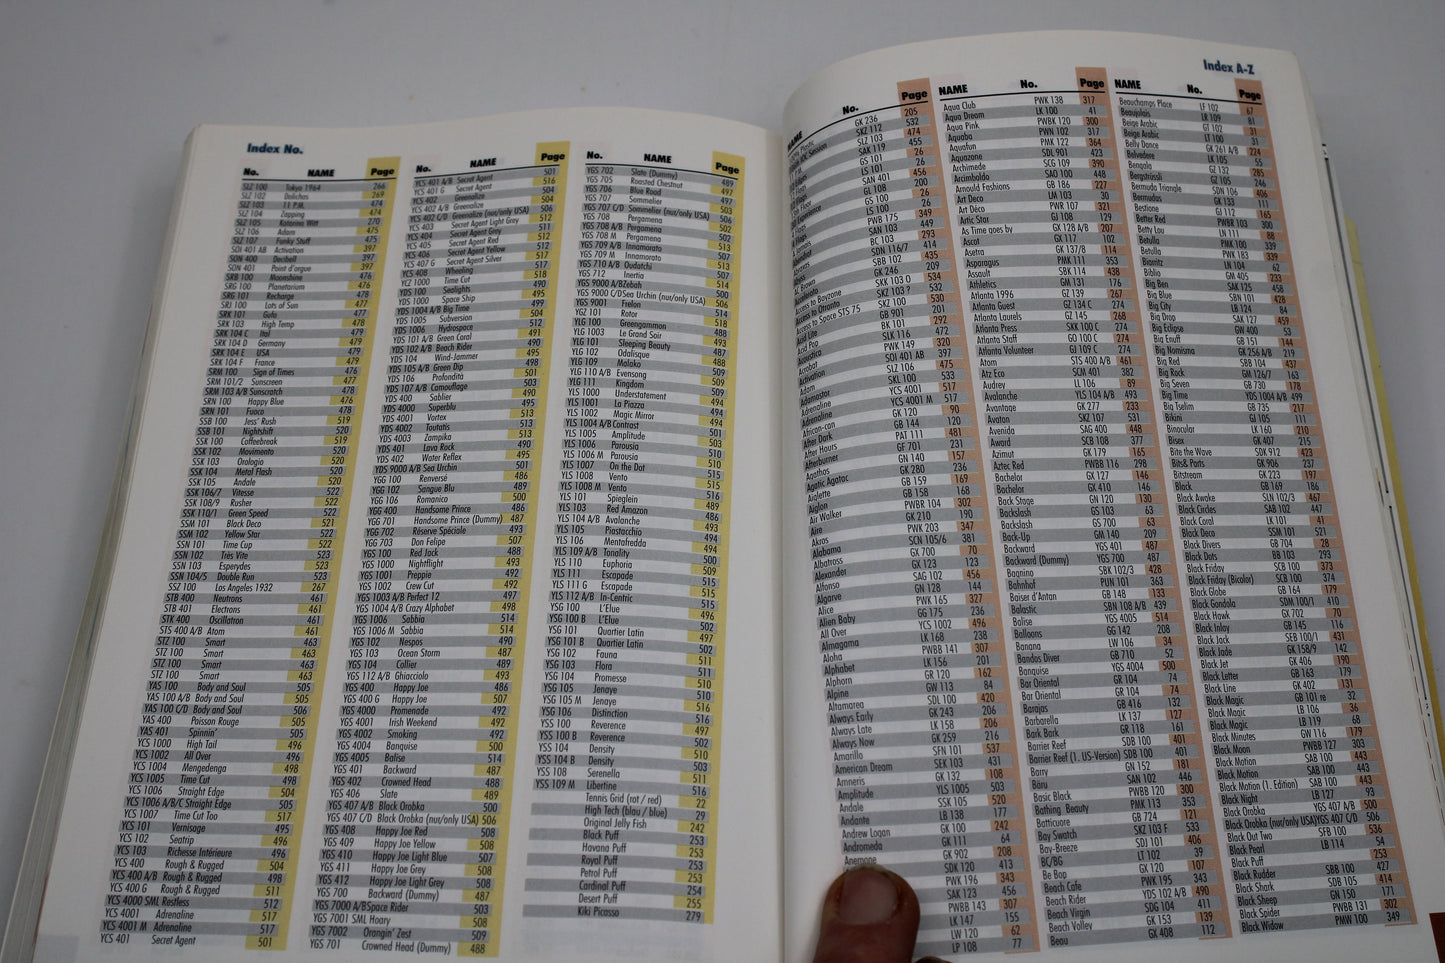 Index No.
No. NAME Page
SLZ 100 Tokyo 1964 266
SLZ 102 Dolichos 269
SLZ 103 11 P.M. 474
SLZ 104 Zapping 474
SLZ 105 Katarina Witt 270
SLZ 106 Adam 475
SLZ 107 Funky Stuff 475
SOI 401 AB Activation 397
SON 400 Decibell 397
SON 401 Point d'orgue 397
SRB 100 Moonshine 476
SRG 100 Planetarium 476
SRG 101 Recharge 478
SRJ 100 Lots of Sun 477
SRK 101 Gufo 477
SRK 103 High Temp 478
SRK 104 C Ital 479
SRK 104 D Germany 479
SRK 104 E USA 479
SRK 104 F France 479
SRM 100 Sign of Times 476
SRM 101/2 Sunscreen 477
SRM 103 A/B Sunscratch 478
SRN 100 Happy Blue 476
SRN 101 Fuoco 478
SSB 100 Jess' Rush 519
SSB 101 Nightshift 520
SSK 100 Coffeebreak 519
SSK 102 Movimento 520
SSK 103 Orologio 520
SSK 104 Metal Flash 520
SSK 105 Andale 520
SSK 106/7 Vitesse 522
SSK 108/9 Rusher 522
SSK 110/1 Green Speed 522
SSM 101 Black Deco 521
SSM 102 Yellow Star 522
SSN 101 Time Cup 522
SSN 102 Très Vite 523
SSN 103 Esperydes 523
SSN 104/5 Double Run 523
SSZ 100 Los Angeles 1932 267
STB 400 Neutrons 461
STB 401 Electrons 461
STK 400 Oscillation 461
STS 400 A/B Atom 461
STZ 100 Smart 463
STZ 100 Smart 463
STZ 100 Smart 463
STZ 100 Smart 463
YAS 100 Body and Soul 505
YAS 100 A/B Body and Soul 505
YAS 100 C/D Body and Soul 506
YAS 400 Poisson Rouge 505
YAS 401 Spinnin' 505
YCS 1000 High Tail 496
YCS 1002 All Over 496
YCS 1004 Mengedenga 498
YCS 1005 Time Cut 498
YCS 1006 Straight Edge 504
YCS 1006 A/B/C Straight Edge 505
YCS 1007 Time Cut Too 517
YCS 101 Vernisage 495
YCS 102 Seatrip 496
YCS 103 Richesse Intérieure 496
YCS 400 Rough & Rugged 504
YCS 400 A/B Rough & Rugged 498
YCS 400 G Rough & Rugged 511
YCS 4000 SML Restless 512
YCS 4001 Adrenaline 517
YCS 4001 M Adrenaline 517
YCS 401 Secret Agent 501
No. NAME Page
YCS 401 A/B Secret Agent 501
YCS 401 G Secret Agent 516
YCS 402 Greenalize 504
YCS 402 A/B Greenalize 504
YCS 402 C/D Greenalize (nur/only USA) 506
YCS 403 Secret Agent Light Grey 512
YCS 404 Secret Agent Grey 511
YCS 405 Secret Agent Red 512
YCS 406 Secret Agent Yellow 512
YCS 407 G Secret Agent Silver 517
YCS 408 Wheeling 518
YCZ 1000 Time Cut 490
YDS 100 Sealights 495
YDS 1000 Space Ship 499
YDS 1004 A/B Big Time 504
YDS 1005 Subversion 512
YDS 1006 Hydrospace 491
YDS 101 A/B Green Coral 490
YDS 102 A/B Beach Rider 495
YDS 104 Wind-Jammer 498
YDS 105 A/B Green Dip 501
YDS 106 Profondita 503
YDS 107 A/B Camouflage 490
YDS 400 Sablier 495
YDS 4000 Superblu 513
YDS 4001 Vortex 513
YDS 4002 Toutatis 513
YDS 4003 Zampika 490
YDS 401 Lava Rock 495
YDS 402 Water Reflex 501
YDS 9000 A/B Sea Urchin 486
YGG 100 Renversé 489
YGG 102 Sangue Blu 500
YGG 106 Romanico 486
YGS 400 Handsome Prince
YGG 701 Handsome Prince (Dummy) 487
YGG 702 Réserve Spéciale 493
YGG 703 Don Felipe 507
YGS 100 Red Jack 488
YGS 1000 Nightflight 493
YGS 1001 Preppie 492
YGS 1002 Crew Cut 492
YGS 1003 A/B Perfect 12 497
YGS 1004 A/B Crazy Alphabet 498
YGS 1006 Sabbia 514
YGS 1006 M Sabbia 514
YGS 102 Nespos 490
YGS 103 Ocean Storm 487
YGS 104 Collier 489
YGS 112 A/B Ghiacciolo 493
YGS 400 Happy Joe 486
YGS 400 G Happy Joe 507
YGS 4000 Promenade 492
YGS 4001 Irish Weekend 492
YGS 4002 Smoking 492
YGS 4004 Banquise 500
YGS 4005 Balise 514
YGS 401 Backward 487
YGS 402 Crowned Head 488
YGS 406 Slate 489
YGS 407 A/B Black Orobka 500
YGS 407 C/D Black Orobka (nur/only USA) 506
YGS 408 Happy Joe Red 508
YGS 409 Happy Joe Yellow 508
YGS 410 Happy Joe Light Blue 507
YGS 411 Happy Joe Grey 508
YGS 412 Happy Joe Light Grey 508
YGS 700 Backward (Dummy) 487
YGS 7000 A/B Space Rider 503
YGS 7001 SML Hoary 508
YGS 7002 Orangin' Zest 509
YGS 701 Crowned Head (Dummy) 488
No. NAME Page
YGS 702 Slate (Dummy) 489
YGS 705 Roasted Chestnut 497
YGS 706 Blue Road 497
YGS 707 Sommelier 503
YGS 707 C/D Sommelier (nur/only USA) 506
YGS 708 Pergamena 502
YGS 708 A/B Pergamena 502
YGS 708 M Pergamena 513
YGS 709 A/B Innamorato 507
YGS 709 M Innamorato 513
YGS 710 A/B Oudatchi 507
YGS 712 Inertia 514
YGS 9000 A/B Zebah 500
YGS 9000 C/D Sea Urchin (nur/only USA) 506
YGS 9001 Frelon 514
YGZ 101 Rotor 518
YLG 100 Greengammon 488
YLG 1003 Le Grand Soir 493
YLG 101 Sleeping Beauty 487
YLG 102 Odalisque 488
YLG 109 Malako 509
YLG 110 A/B Evensong 509
YLS 1000 Kingdom 494
YLS 1000 Understatement 494
YLS 1001 La Piazza 494
YLS 1002 Magic Mirror 494
YLS 1004 A/B Contrast 501
YLS 1005 Amplitude 503
YLS 1006 Parousia 510
YLS 1006 M Parousia 510
YLS 1007 On the Dot 515
YLS 1008 Vento 515
YLS 1008 M Vento 489
YLS 101 Spieglein 486
YLS 103 Red Amazon 493
YLS 104 A/B Avalanche 493
YLS 105 Piastacchio 494
YLS 106 Mentagrade 494
YLS 109 A/B Tonality 500
YLS 110 Euphoria 509
YLS 111 Escapade 515
YLS 111 G Escapade 515
YLS 112 A/B In-Centric 515
YSG 100 L'Elue 496
YSG 100 B L'Elue 502
YSG 101 Quartier Latin 497
YSG 101 B Quartier Latin 502
YSG 102 Fauna 511
YSG 103 Flora 511
YSG 104 Promesse 510
YSG 105 Jenaye 510
YSG 105 M Jenaye 516
YSG 106 Distinction 516
YSS 100 Reverence 497
YSS 100 B Reverence 502
YSS 104 Density 510
YSS 104 B Density 503
YSS 108 Serenella 511
YSS 109 M Libertine 516
Tennis Grid (rot / red) 22
High Tech (blau / blue) 29
Original Jelly Fish 242
Black Puff 253
Havana Puff 253
Royal Puff 253
Petrol Puff 253
Cardinal Puff 254
Desert Puff 255
Kiki Picasso 279
Index A-Z
No. Page
GK 236 205
SKZ 112 532
SLZ 103 474
SAK 119 455
GS 101 26
LS 101 26
SAN 401 456
GL 108 200
GS 100 26
LS 100 26
PWB 175 349
SAN 103 449
BC 103 293
SDN 116/7 414
SBB 102 435
GK 246 209
Access to Bayzone SKK 103 O 534
Access to Ottanta SKZ 103 ? 532
Access to Space STS 75 SKZ 100 530
Acid Lite GB 901 201
Acid Pop BK 101 292
Acoustica SLK 116 472
Acrobat PWK 149 320
Activation SOI 401 AB 397
Adam SLZ 106 475
Adamastor SKL 100 533
Adrenaline YCS 4001 517
Adrenaline YCS 4001 M 517
African-can GK 120 90
After Dark GB 144 120
After Hours PAT 111 481
Afterburner GF 701 231
Agathos GN 140 157
Agatic Agatac GK 280 236
Aiglette GB 159 169
Aiglon GB 158 168
Air Walker PWBR 104 302
Aire GK 210 190
Akros PWK 203 347
Alabama SCN 105/6 381
Albatross GX 700 70
Alexander GX 123 123
Alfonso SAG 102 456
Algarve GN 128 144
Alice PWK 165 327
Alien Baby GG 175 236
All Over YCS 1002 496
Almagama LK 168 238
Aloha PWBB 141 307
Alphabet LK 156 201
Alphorn GR 120 162
Alpine GW 113 84
Altamarea SDL 100 420
Always Early GK 243 206
Always Late LK 158 206
Always Now GK 259 216
Amarillo SFN 101 537
American Dream SEK 103 431
Amneris GK 132 108
Amplitude YLS 1005 503
Andale SSK 105 520
Andante LB 138 177
Andrew Logan GK 100 242
Andromeda GK 111 64
Anemone GK 902 208
SDK 120 413
PWK 196 343
SAK 123 456
PWBB 143 307
LK 147 155
LW 120 62
LP 108 77
NAME No. Page
Aqua Club PWK 138 317
Aqua Dream LK 100 41
Aqua Pink PWBK 120 300
Aquaba PWN 102 317
Aquafun PMK 122 364
Aquazone SDL 901 423
Archimede SCG 109 390
Arcimboldo SAO 100 448
Arnould Fashions GB 186 227
Art Deco LM 103 30
Art Déco PWR 107 321
Artic Star GJ 108 129
As Time goes by GK 128 A/B 207
Ascot GX 117 102
Asetra GK 137/B 114
Asparagus PMK 111 353
Assault SBK 114 438
Athletics GM 131 176
Atlanta 1996 GZ 139 267
Atlanta Guest GZ 134 C 274
Atlanta Laurels GZ 145 268
Atlanta Press SKK 100 C 274
Atlanta Staff GO 100 C 274
Atlanta Volunteer GJ 109 C 274
Atom STS 400 A/B 461
Atz Eco SCM 401 382
Audrey LL 106 89
Avalanche YLS 104 A/B 493
Avantage GK 277 233
Avaton SKZ 107 531
Avenida SAG 400 448
Award SCB 108 377
Azimut GK 179 165
Aztec Red PWBB 116 298
Bachelor GX 127 146
Bachelor GX 410 146
Back Stage GN 120 130
Backslash GS 103 63
Backslash GS 700 63
Back-Up GM 140 209
Backward YGS 401 487
Backward (Dummy) YGS 700 487
Bagnino SBK 102/3 428
Bahnhof PUN 101 363
Baiser d'Antan GB 148 133
Balastic SBN 108 A/B 439
Balise YGS 4005 514
Balloons GG 142 208
Banana LW 106 34
Bandos Diver GB 710 52
Banquise YGS 4004 500
Bar Oriental GR 104 74
Bar Oriental GR 104 74
Barajas GB 416 132
Barbarella LK 137 127
Bark Bark GR 118 161
Barrier Reef SDB 100 401
Barrier Reef (1. US-Version) SDB 100 401
Barry GN 152 181
Baru SAN 102 446
Basic Black PWBB 120 300
Bathing Beauty PMK 113 353
Batticuore GB 724 121
Bay Swatch SKZ 103 F 533
Bay-Breeze SDJ 101 406
BC/BG LT 102 39
Be Bop GX 120 107
Beach Cafe PWK 195 343
Beach Rider YDS 102 A/B 490
Beach Virgin SDG 104 411
Beach Volley GK 153 139
Beau GK 408 112
NAME No. Page
Beauchamps Place LF 102 67
Beaujolais LR 109 81
Beige Arabic GT 102 31
Beige Arabic LT 100 31
Belly Dance GK 261 A/J 224
Belvedere LK 105 55
Bengala GZ 132 285
Bergstrüssli GZ 105 246
Bermuda Triangle SDN 106 406
Bermudas GK 133 111
Bestione GJ 112 165
Better Red PWBB 103 300
Betty Lou LN 111 88
Betulla PMK 100 339
Betulla PWK 183 339
Bianritz LN 104 62
Biblio GM 405 233
Big Ben SAK 125 458
Big Blue SBN 101 428
Big City LB 124 84
Big Drop SAK 127 459
Big Eclipse GW 400 53
Big Enuff GB 151 144
Big Nomisma GK 256 A/B 219
Big Red SBB 104 437
Big Rock GM 126/7 163
Big Seven GB 730 178
Big Time YDS 1004 A/B 499
Big Tselim GB 735 217
Bikini GJ 105 111
Binocular LK 160 210
Bisex GK 407 215
Bite the Wave SDK 912 423
Bits& Parts GK 906 237
Bitstream GK 223 197
Black GB 169 186
Black Awake SLN 102/3 467
Black Circles SAB 102 447
Black Coral LK 101 41
Black Deco SSM 101 521
Black Divers GB 704 28
Black Dots BB 103 293
Black Friday SCB 100 373
Black Friday (Bicolor) SCK 100 374
Black Globe GB 164 179
Black Gondola SDM 100/1 410
Black Hawk GX 702 70
Black Inlay GB 145 116
Black Jack SEB 100/1 431
Black Jade GK 158/9 142
Black Jet GK 406 190
Black Letter GB 163 179
Black Line GK 402 131
Black Magic GB 101 re 32
Black Magic LB 106 36
Black Magic LB 119 68
Black Minutes GW 116 179
Black Moon PWBB 127 303
Black Motion SAB 100 443
Black Motion SAB 100 443
Black Motion (1. Edition) SAB 100 443
Black Night LB 127 93
Black Orobka YGS 407 A/B 500
Black Orobka (nur/only USA) YGS 407 C/D 506
Black Out Two SFB 100 536
Black Pearl LB 114 54
Black Puff 253
Black Rudder SBB 100 427
Black Shark SDB 105 414
Black Sheep GN 150 171
Black Spider PWBB 131 302
Black Widow PMW 100 349